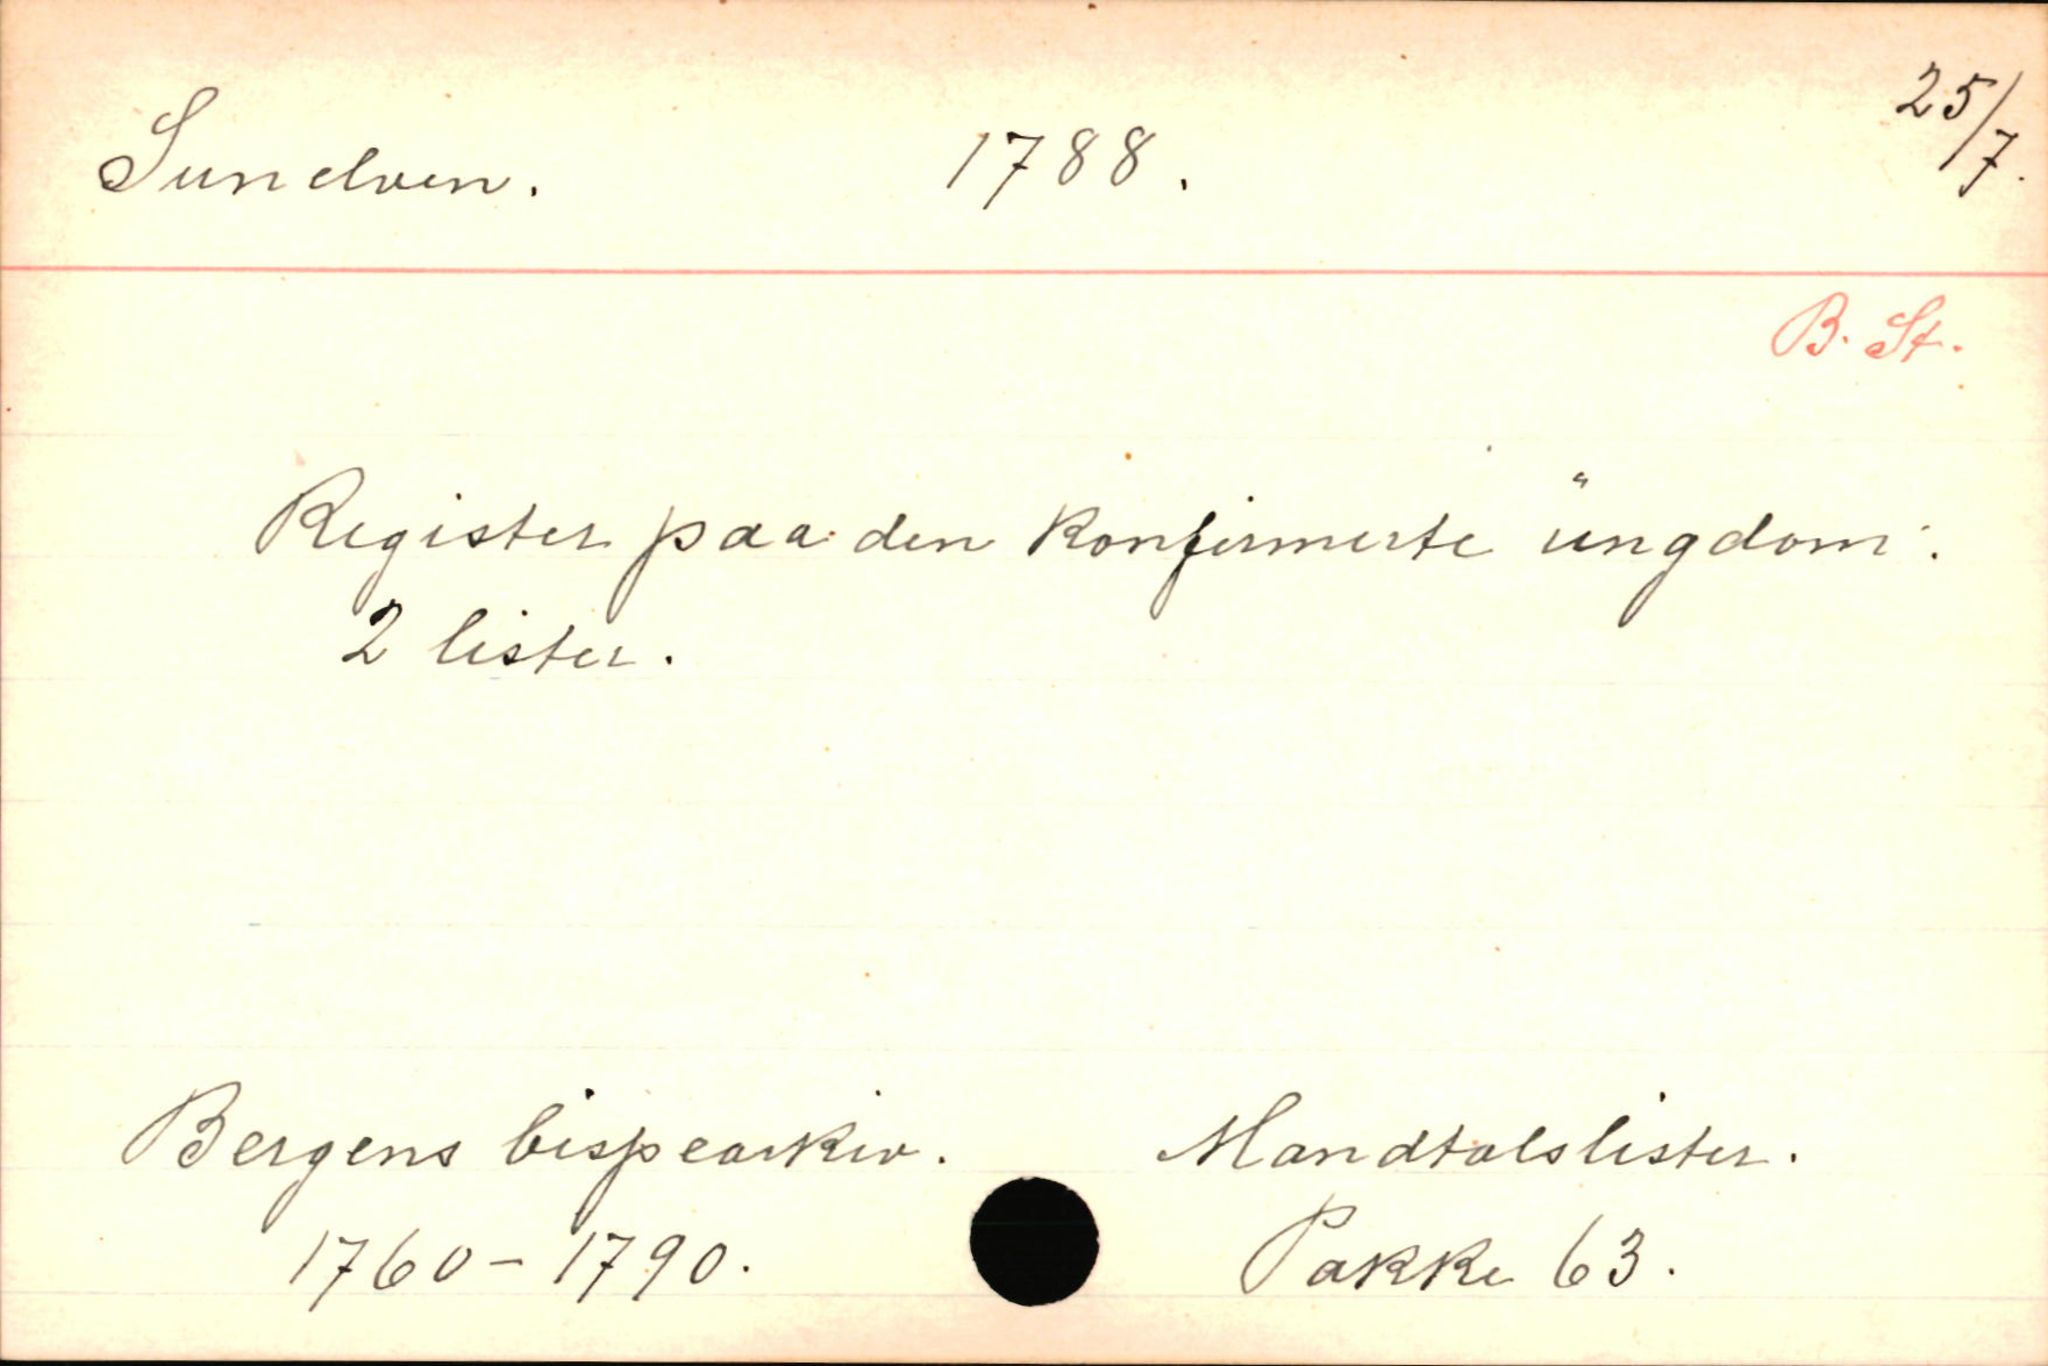 Sunelven. 1788. 25/7.
B. St.
Register paa den konfirmerte ungdom.
2 lister.
Bergens bispearkiv. Mandtalslister.
1760-1790. Pakke 63.